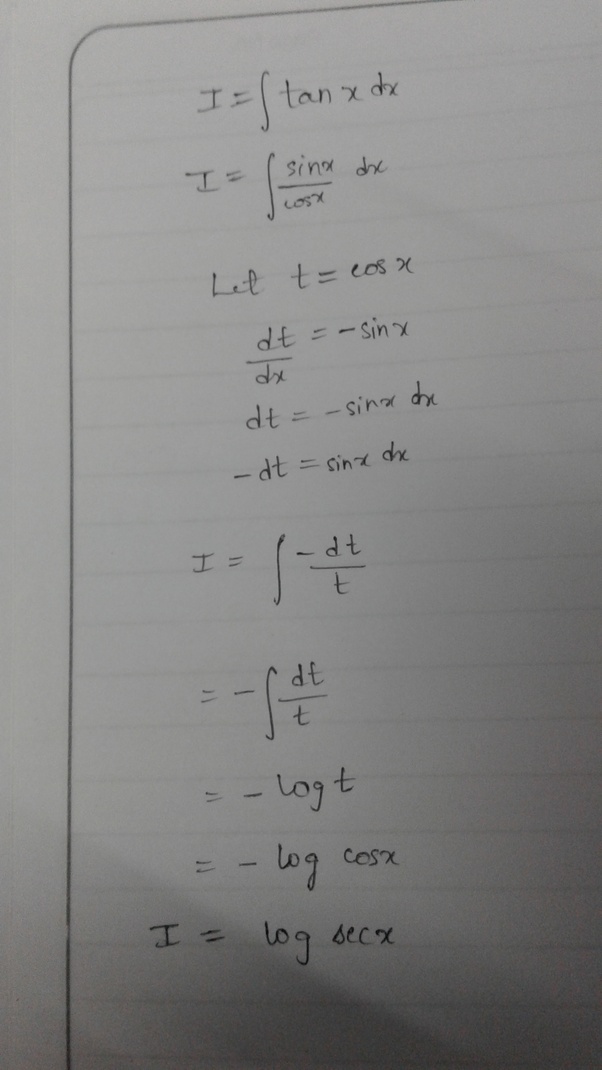 I = ∫ tan x dx
I = ∫ sinx/cosx dx
Let t = cos x
dt/dx = -sinx
dt = -sinx dx
-dt = sinx dx
I = ∫ -dt/t
= -∫ dt/t
= - log t
= - log cosx
I = log secx